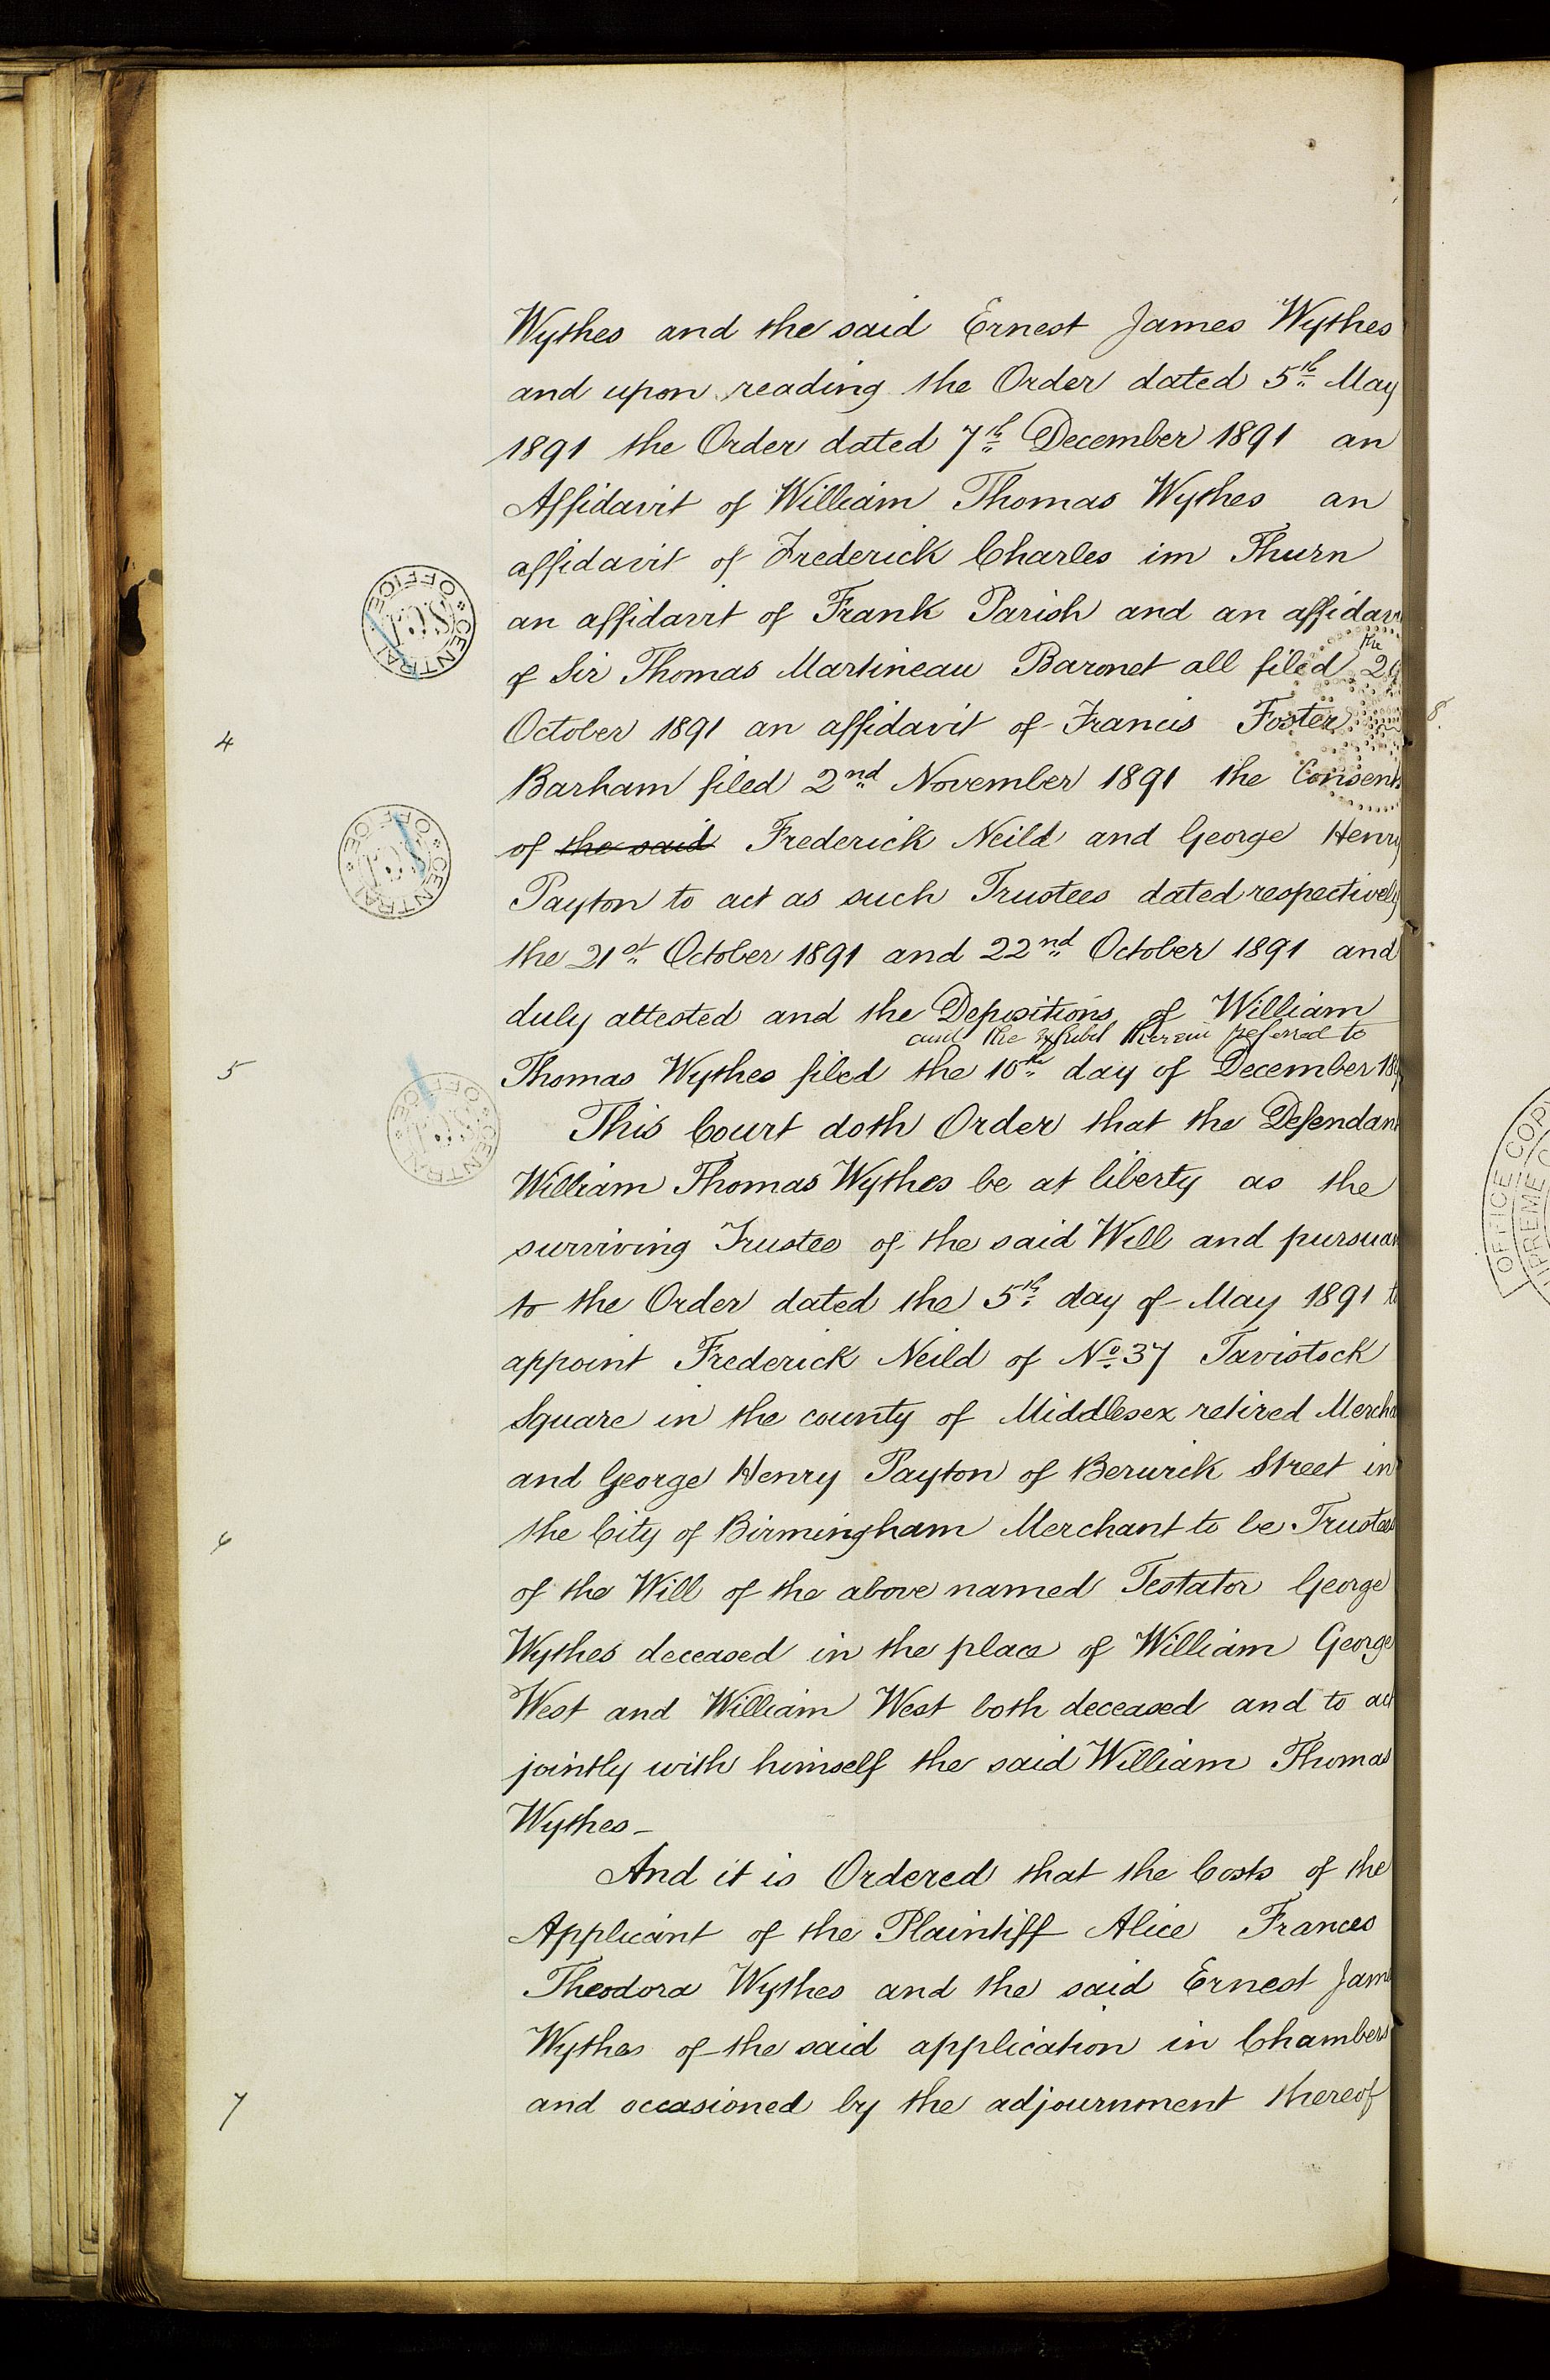 Wythes and the said Ernest James Wythes
and upon reading the Order dated 5th May
1891 the Order dated 7th December 1891 an
Affidavit of William Thomas Wythes an
affidavit of Frederick Charles im Thurn
an affidavit of Frank Parish and an affidavi
of Sir Thomas Martineau Baronet all filed the
October 1891 an affidavit of Francis Foster
4
Barham filed 2nd November 1891 the Consent
of the said Frederick Neild and George Henry
Payton to act as such Trustees dated respectively
the 21st October 1891 and 22nd October 1891 and
duly attested and the Depositions of William
and the exhibit therein referred to
Thomas Wythes filed the 10th day of December 18
5
This Court doth Order that the Defendant
William Thomas Wythes be at liberty as the
surviving Trustee of the said Will and pursuan
to the Order dated the 5th day of May 1891 to
appoint Frederick Neild of No. 37 Tavistock
Square in the county of Middlesex retired Mercha
and George Henry Payton of Berwick Street in
the City of Birmingham Merchant to be Trustees
6
of the Will of the above named Testator George
Wythes deceased in the place of William George
West and William West both deceased and to act
jointly with himself the said William Thomas
Wythes-
And it is Ordered that the Costs of the
Applicant of the Plaintiff Alice Frances
Theodora Wythes and the said Ernest Jame
Wythes of the said application in Chambers
and occasioned by the adjournment thereof
7
CENTRAL OFFICE
CENTRAL OFFICE
CENTRAL OFFICE
8.
OFFICE COPY